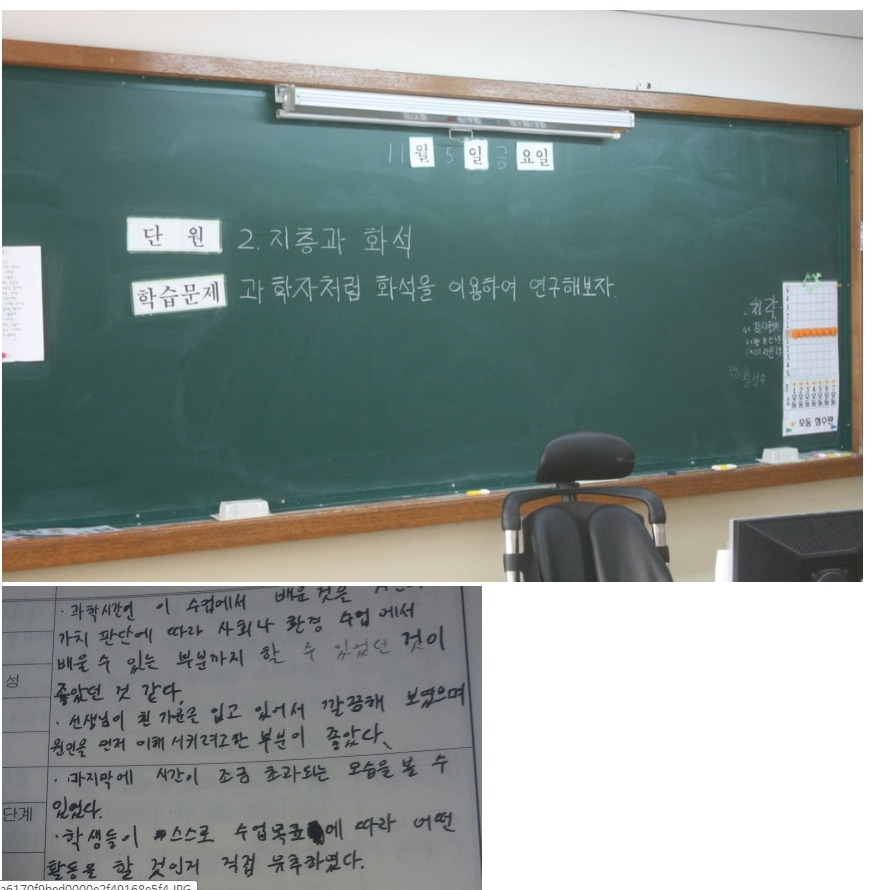 11월 5일 금요일
단 원 2. 지층과 화석
학습문제 과학자처럼 화석을 이용하여 연구해보자.
지각
모둠 점수판
· 과학시간인 이 수업에서 배운 것을
가치 판단에 따라 사회나 환경 수업에서
배울 수 있는 부분까지 할 수 있었던 것이
성
좋았던 것 같다.
· 선생님이 흰 가운을 입고 있어서 깔끔해 보였으며
원인을 먼저 이해시키려고한 부분이 좋았다.
· 마지막에 시간이 조금 초과되는 모습을 볼 수
있었다.
단계
· 학생들이 스스로 수업목표에 따라 어떤
활동을 할 것인지 직접 유추하였다.
a6170f9bed0000e2f49168e5f4.JPG